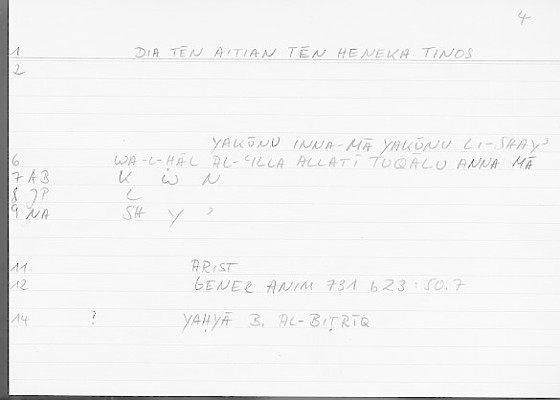 4
1 DIA TĒN AITIAN TĒN HENEKA TINOS
2
YAKŪNU INNA-MĀ YAKŪNU LI-SHAYʾ
6 WA-L-ḤĀL AL-ʿILLA ALLATĪ TUQĀLU ANNA MĀ
7 AB K W N
8 JP L
9 NA SH Y ʾ
11 ARIST
12 GENER ANIM 731 b23:50.7
14 ? YAḤYĀ B. AL-BIṬRĪQ